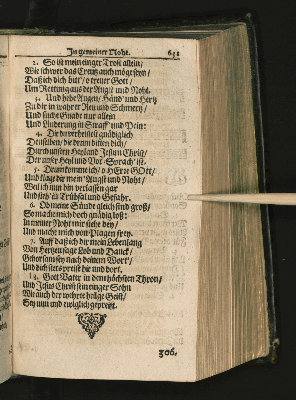 In gemeiner Noht. 631
2. So ist mein einger Trost allein/
Wie schwer das Creutz auch mög seyn/
Daß ich dich bitt/ o treuer Gott/
Um Rettung aus der Angst und Noht.
3. Und hebe Augen/ Händ und Hertz
Zu dir in wahrer Reu und Schmertz/
Und suche Gnade nur allein
Und Linderung in Straff und Pein:
4. Die du verheissest gnädiglich
Denselben/ die drum bitten dich/
Durch unsern Heyland Jesum Christ/
Der unser Heyl und Vor-Sprach ist.
5. Drum komme ich/ o HErre GOtt/
Und klag dir mein' Angst und Noht/
Weil ich nun bin verlassen gar
Und steh' in Trübsal und Gefahr.
6. Ob meine Sünde gleich sind groß/
So mache mich doch gnädig loß:
In meiner Noht mir stehe bey/
Und mache mich von Plagen frey.
7. Auff daß ich dir mein Lebenlang
Von Hertzen sage Lob und Danck/
Gehorsam sey nach deinem Wort/
Und dich stets preise hie und dort.
Gott Vater in dem höchsten Thron/
Und Jesus Christ sein einger Sohn
Wie auch der wehrte heilge Geist/
Sey nun und ewiglich gepreist.
306.